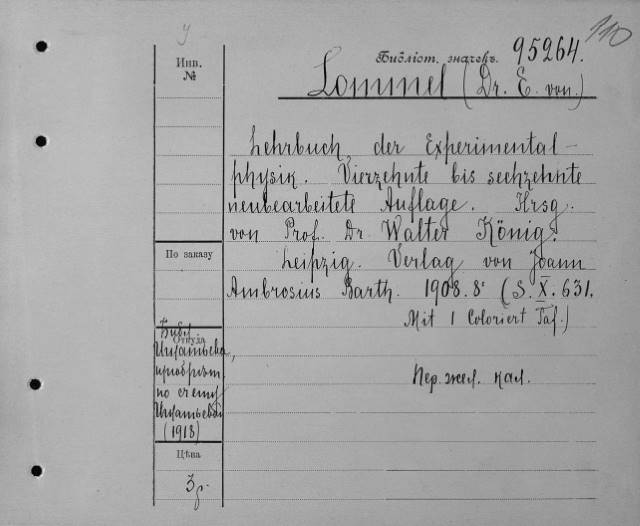 110
У
Инв. №
Библіот. значекъ. 95264.
Lommel (Dr. E. von.)
Lehrbuch der Experimental-
physik. Vierzehnte bis sechzehnte
neubearbeitete Auflage. Hrsg.
von Prof. Dr. Walter König.
Leipzig. Verlag von Joann
Ambrosius Barth. 1908. 8° (S. X. 631.
Mit 1 Coloriert Taf.)
По заказу
Откуда
Библ.
Игнатьева,
приобрѣт.
по счету
Игнатьевой
(1913)
Пер. жел. кал.
Цѣва
3 р.